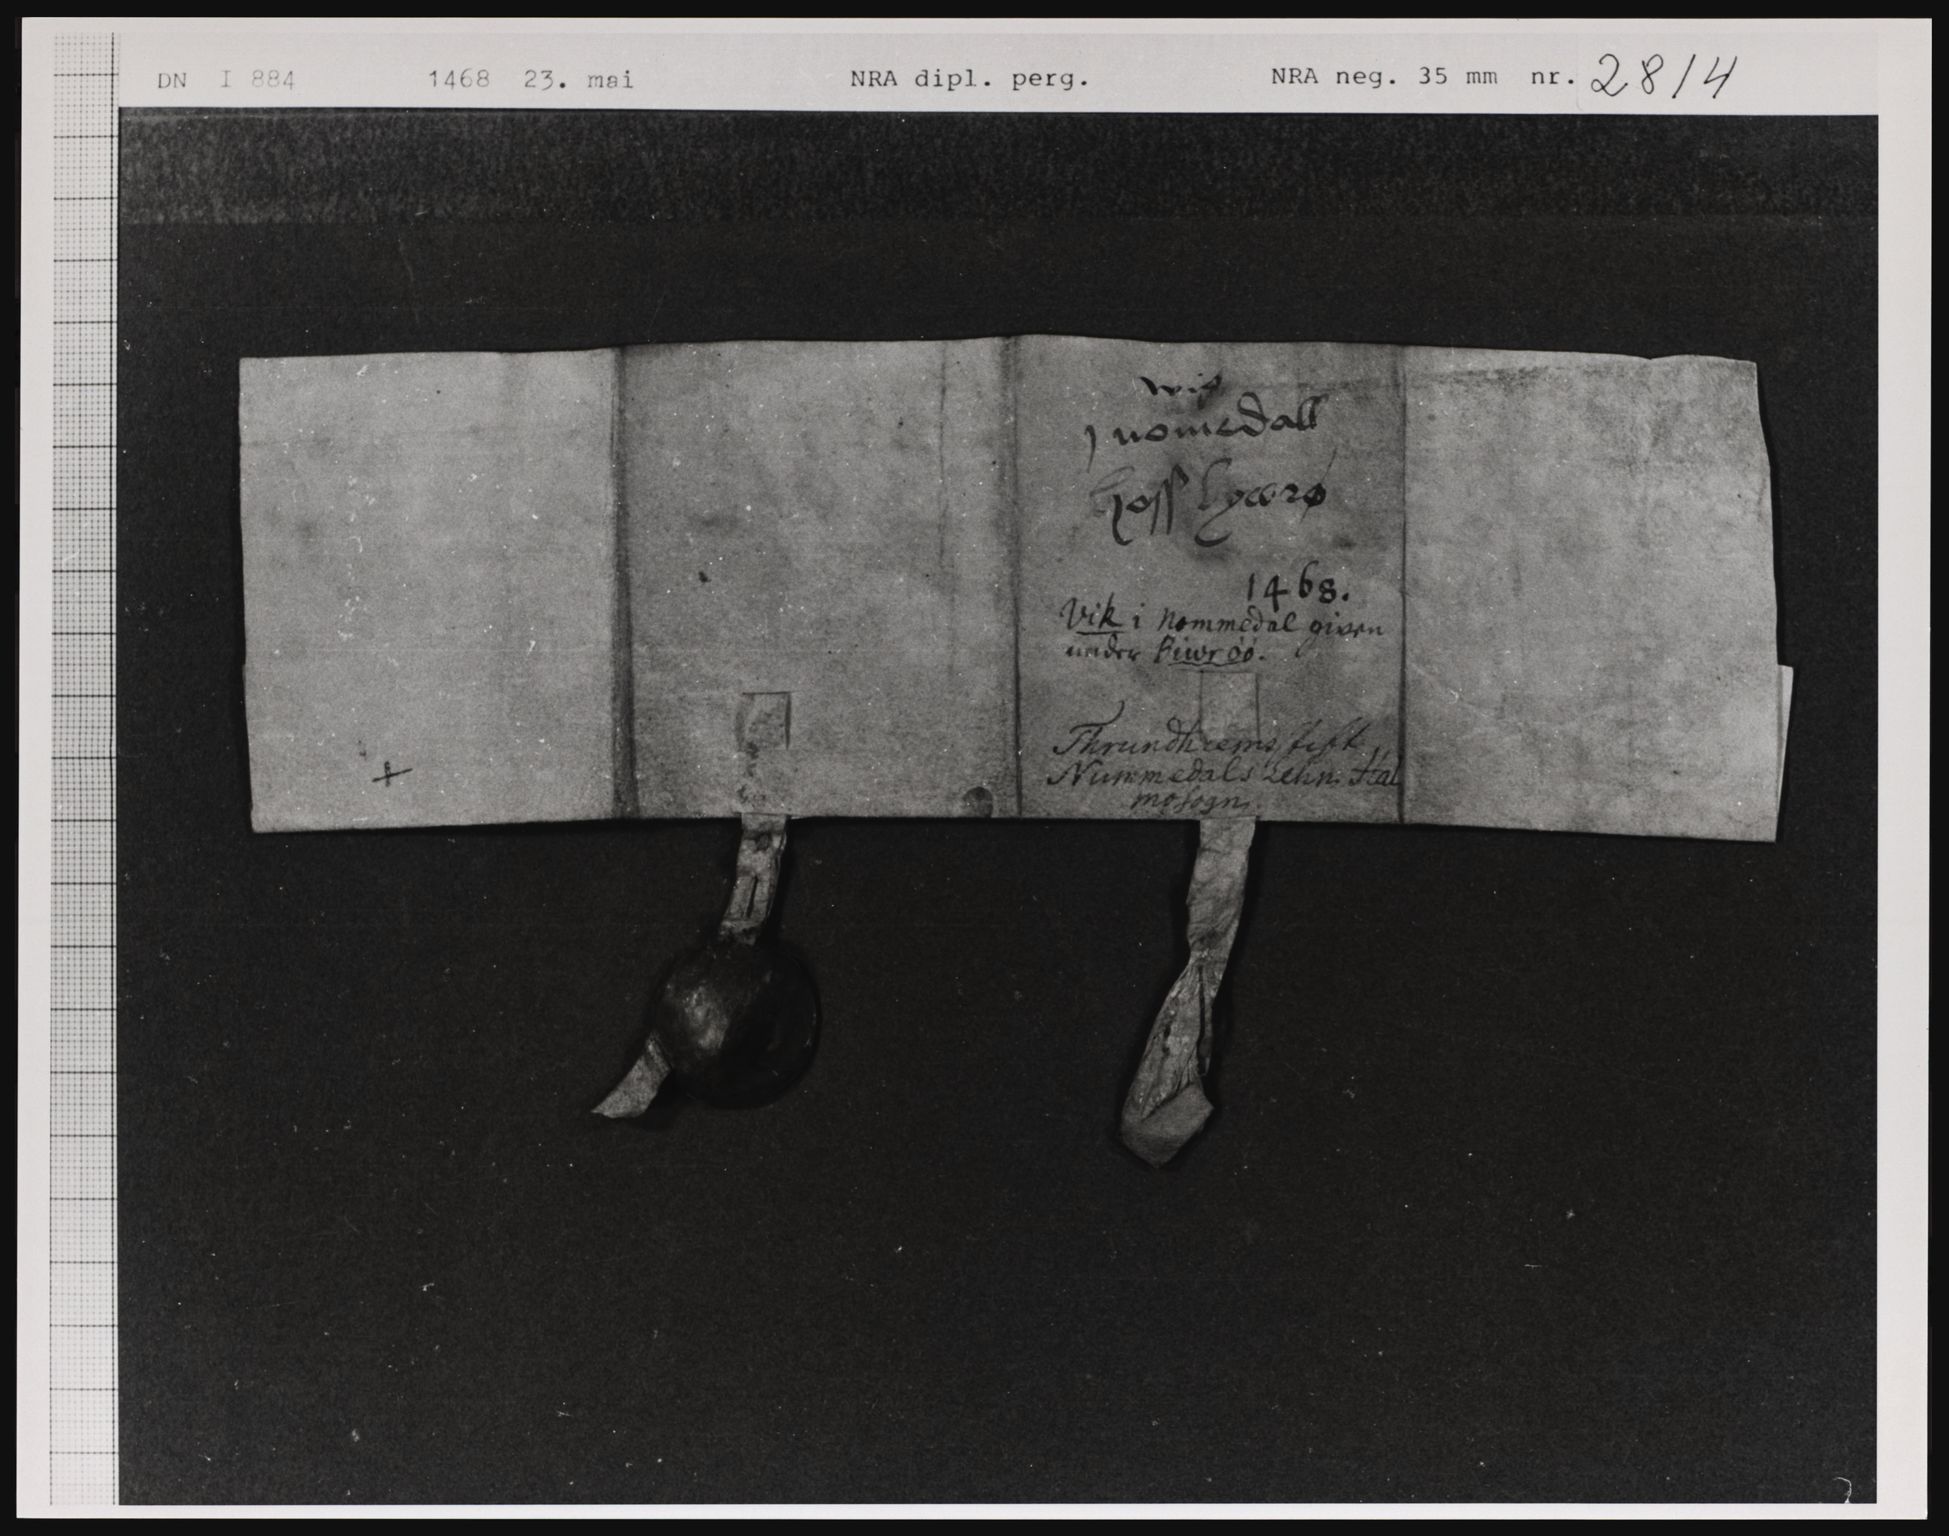 DN I 884 1468 23. mai NRA dipl. perg. NRA neg. 35 mm nr. 2814
wiſ
j nomedall
hoſſ bywrø
1468.
Vik i Nommedal given
under Biwröö.
Thrundhiems stift
Nummedals lehn. Hal
mosogn.